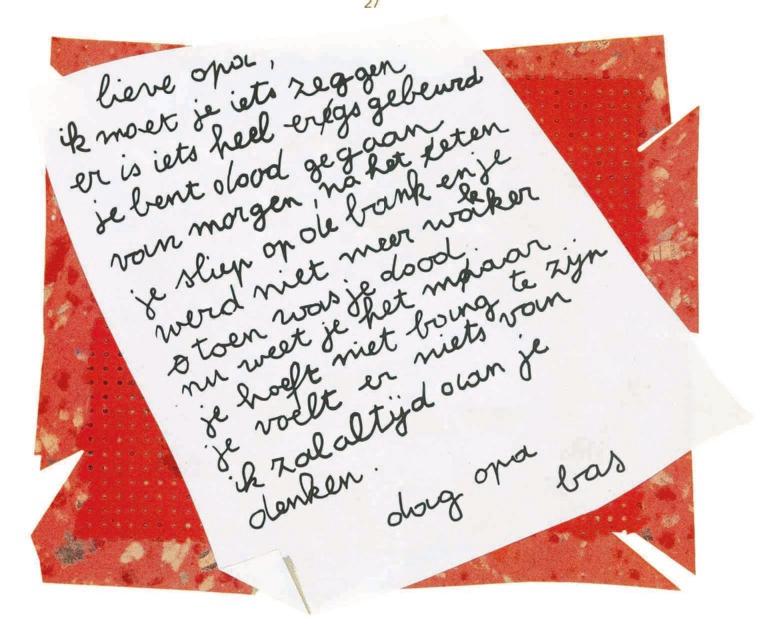 27
lieve opa,
ik moet je iets zeggen
er is iets heel ergs gebeurd
je bent dood gegaan
van morgen, na het eten
je sliep op de bank en je
werd niet meer wakker
toen was je dood.
nu weet je het maar
je hoeft niet bang te zijn
je voelt er niets van
ik zal altijd aan je
denken.
dag opa
bas